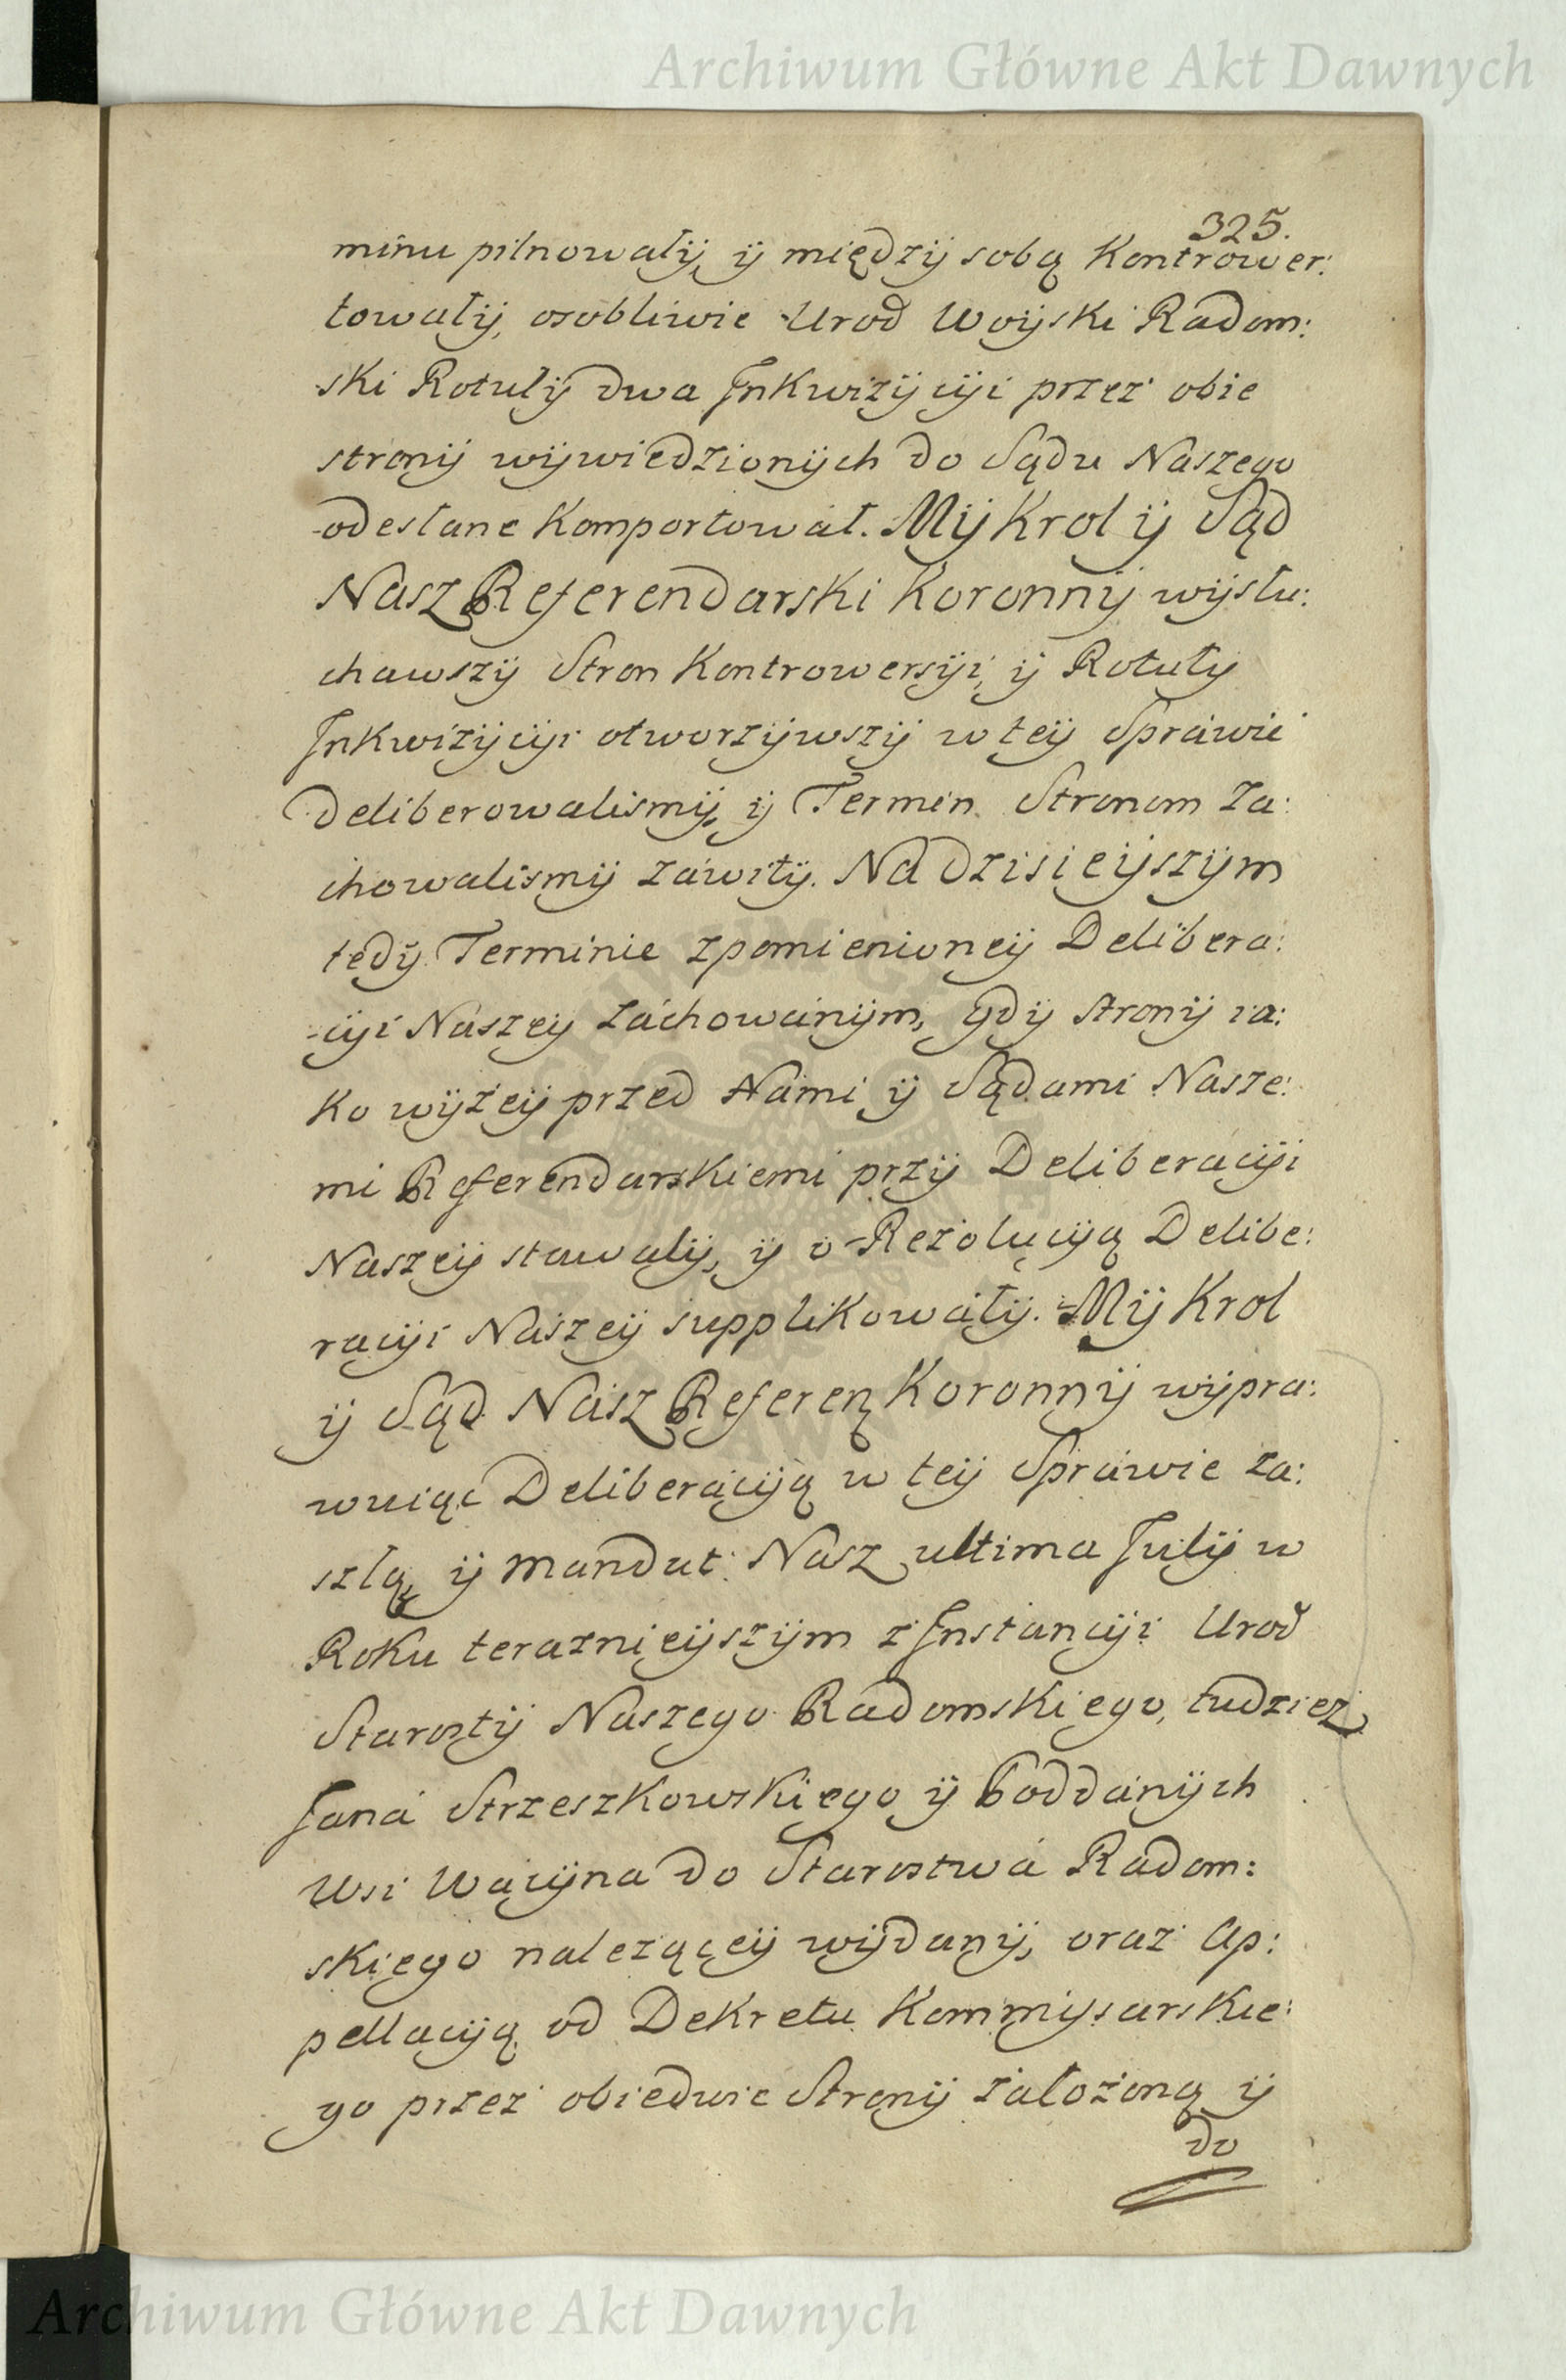 Archiwum Główne Akt Dawnych
325.
minu pilnowały, ÿ międzÿ sobą Kontrower:
towałÿ, osobliwie Urod Woÿski Radom:
ski Rotulÿ dwa Inkwizÿcÿi przez obie
stronÿ wÿwiedzionÿch do Sądu Naszego
odesłane Komportował. Mÿ Krol ÿ Sąd
Nasz Referendarski Koronnÿ wÿsłu:
chawszÿ Stron Kontrowersÿi, ÿ Rotułÿ
Inkwizÿcÿi otworzÿwszÿ w teÿ Sprawie
Deliberowalismÿ, ÿ Termin Stronom za:
chowalismÿ zawitÿ. Na dzisieÿszÿm
tedÿ Terminie z pomienioneÿ Delibera:
cÿi Naszeÿ zachowanÿm, gdÿ stronÿ ia:
ko wÿżeÿ przed Nami ÿ Sądami Nasze:
mi Referendarskiemi przÿ Deliberacÿi
Naszeÿ stawałÿ, ÿ o Rezolucÿą Delibe:
racÿi Naszeÿ supplikowałÿ. Mÿ Krol
ÿ Sąd Nasz Referen Koronnÿ wÿpra:
wuiąc Deliberacÿą w teÿ Sprawie za:
szłą, ÿ Mandat Nasz ultima Julÿ w
Roku teraznieÿszÿm z Instancÿi Urod
Starostÿ Naszego Radomskiego, tudziez
Jana Strzeszkowskiego ÿ Poddanÿch
Wsi Wacÿna do Starostwa Radom:
skiego nalezączeÿ wÿdanÿ, oraz Ap:
pellacÿą od Dekretu Kommÿsarskie:
go przez obiedwie Stronÿ założoną ÿ
do
Archiwum Główne Akt Dawnych